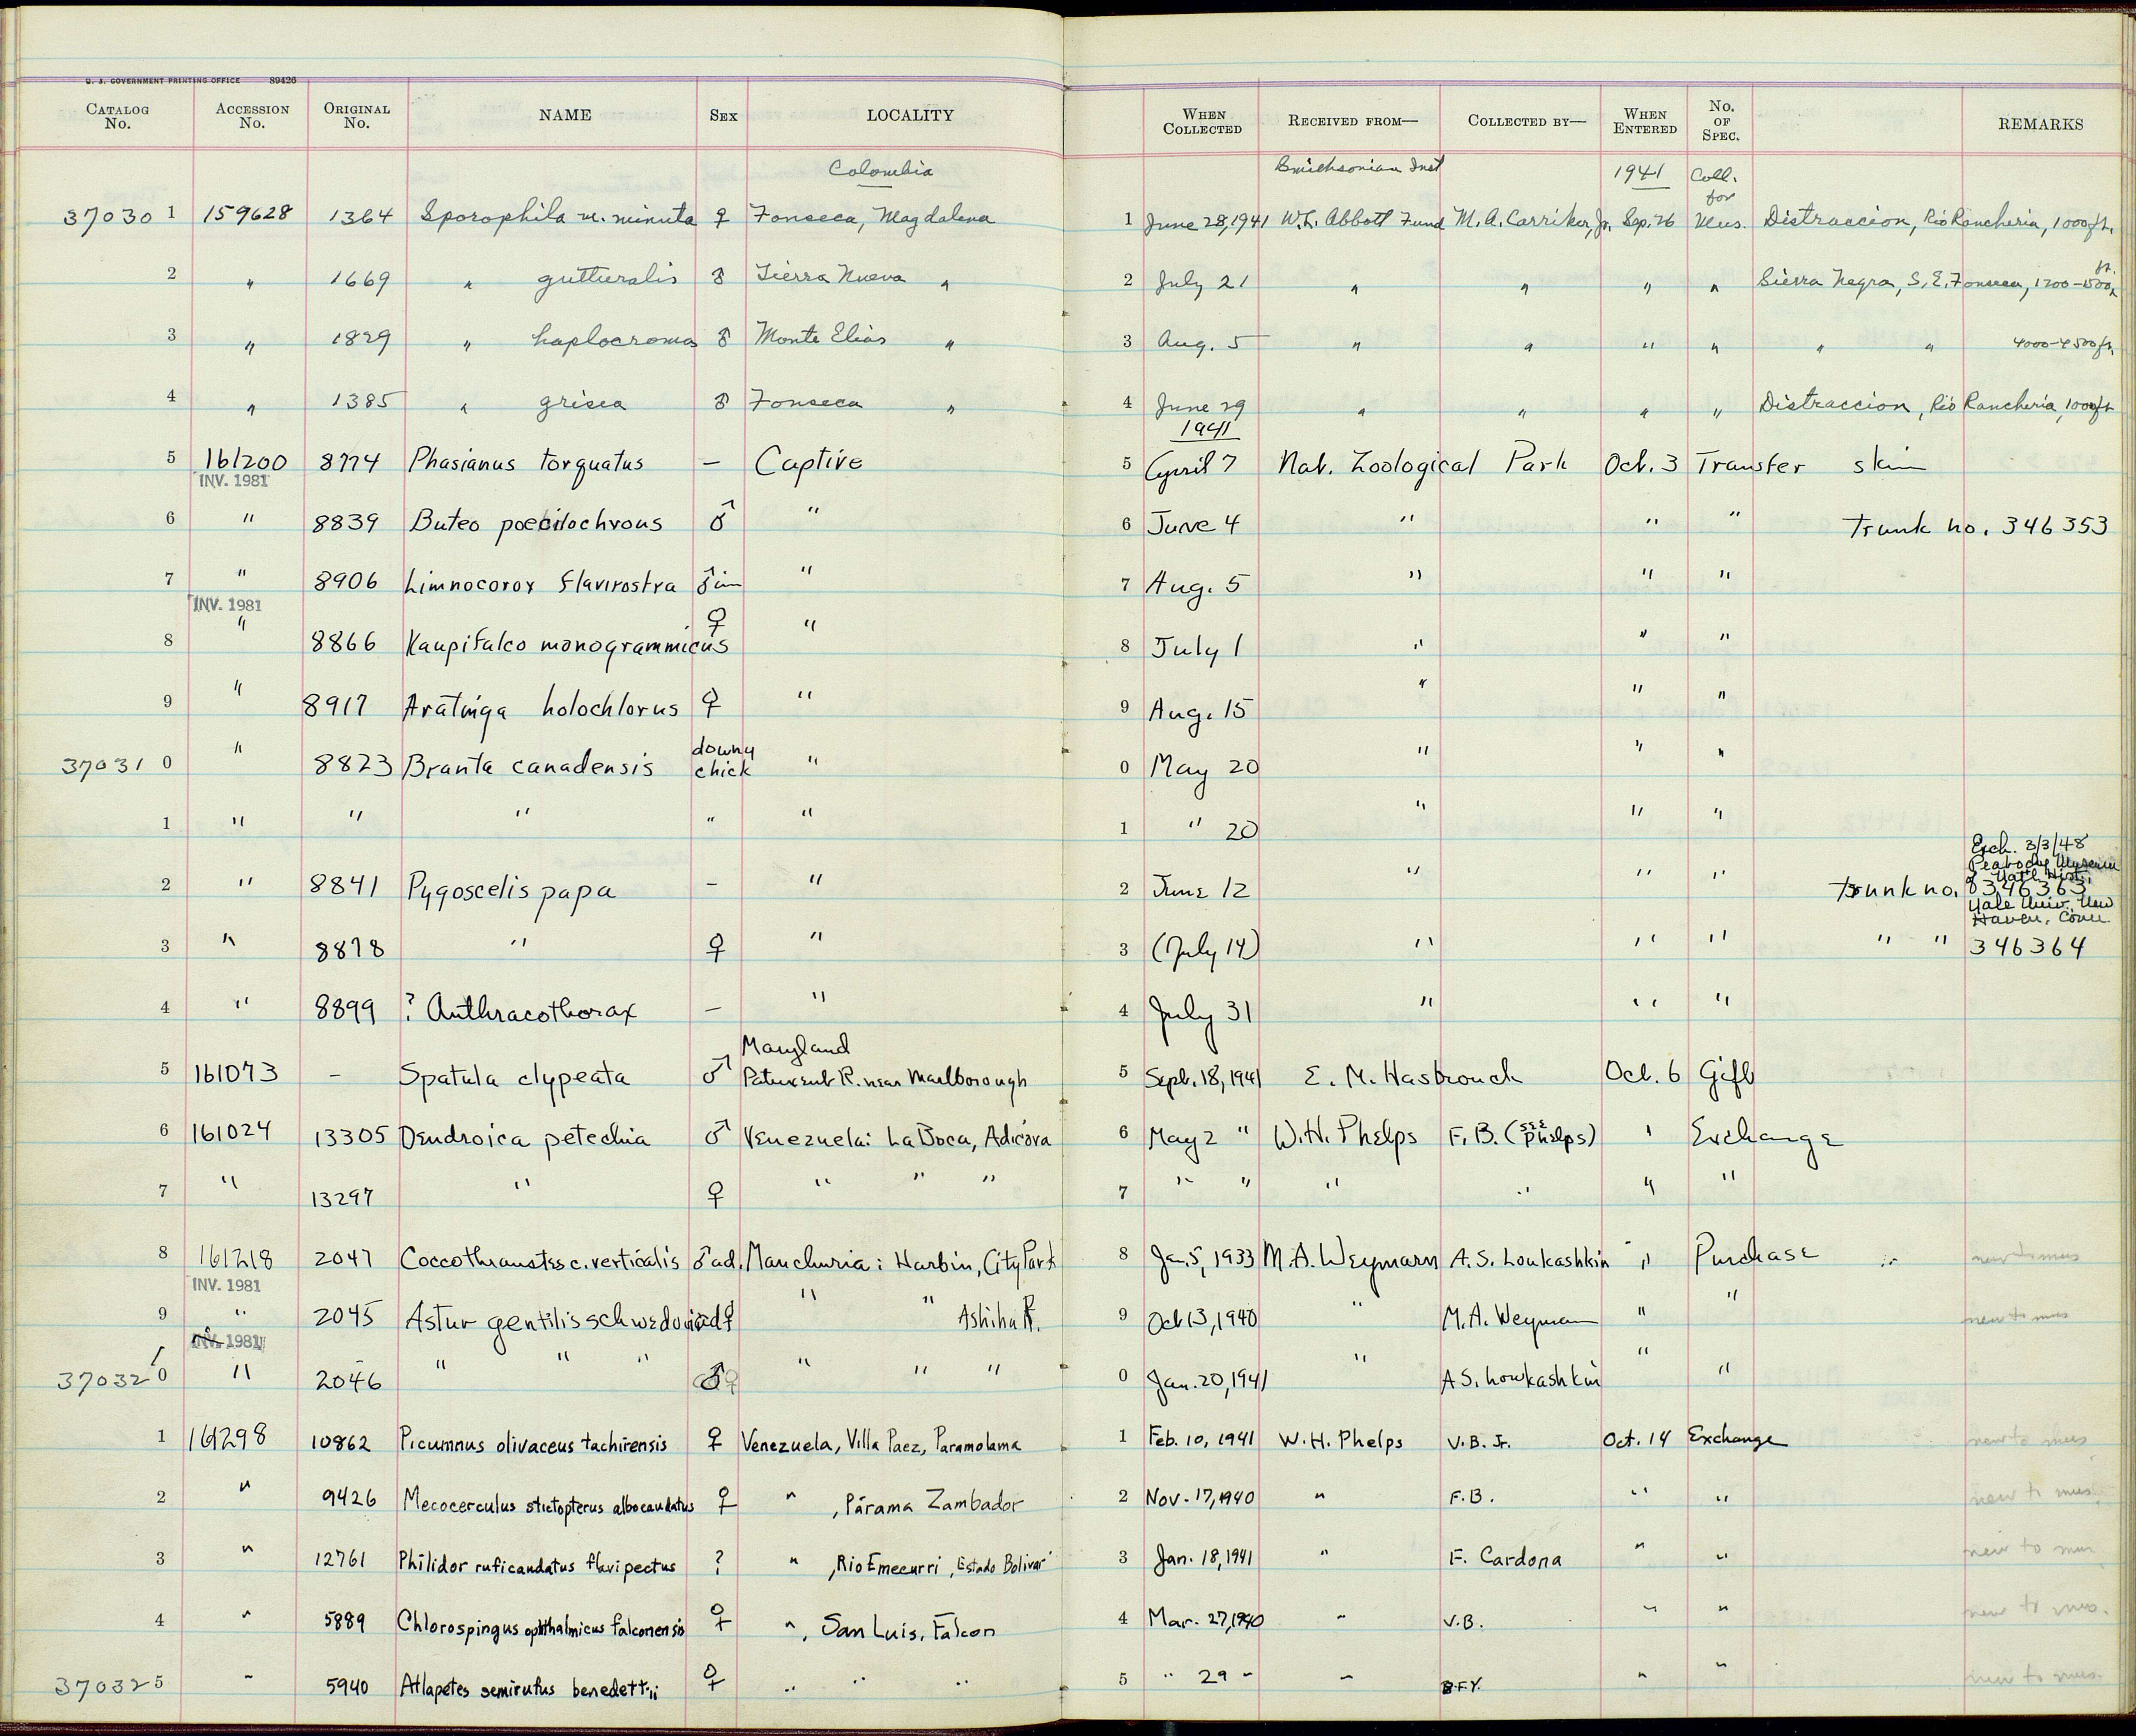 U. S. GOVERNMENT PRINTING OFFICE 89426
CATALOG No. ACCESSION No. ORIGINAL No. NAME SEX LOCALITY WHEN COLLECTED RECEIVED FROM— COLLECTED BY— WHEN ENTERED No. OF SPEC. REMARKS
Colombia Smithsonian Inst 1941 Coll. for
37030 1 159628 1364 Sporophila m. minuta ♀ Fonseca, Magdalena 1 June 28, 1941 W. L. Abbott Fund M. A. Carriker, Jr. Sep. 26 Mus. Distraccion, Rio Rancheria, 1000 ft.
2 " 1669 " gutturalis ♂ Sierra Nueva " 2 July 21 " " " " Sierra Negra, S. E. Fonseca, 1200-1500 ft.
3 " 1829 " haplocroma ♂ Monte Elias " 3 Aug. 5 " " " " " " 4000-4500 ft.
4 " 1385 " grisea ♂ Fonseca " 4 June 29 " " " " Distraccion, Rio Rancheria, 1000 ft
1941
5 161200 8774 Phasianus torquatus – Captive 5 April 7 Nat. Zoological Park Oct. 3 Transfer skin
INV. 1981
6 " 8839 Buteo poecilochrous ♂ " 6 June 4 " " " Trunk no. 346353
7 " 8906 Limnocorox flavirostra ♂ im " 7 Aug. 5 " " "
INV. 1981
8 " 8866 Kaupifalco monogrammicus ♀ " 8 July 1 " " "
9 " 8917 Aratinga holochlorus ♀ " 9 Aug. 15 " " "
37031 0 " 8823 Branta canadensis downy chick " 0 May 20 " " "
1 " " " " " 1 " 20 " " "
Exch. 3/3/48
Peabody Museum
of Nat'l Hist.,
2 " 8841 Pygoscelis papa – " 2 June 12 " " " trunk no. 346363
Yale Univ. New
Haven, Conn.
3 " 8878 " ♀ " 3 (July 14) " " " " " 346364
4 " 8899 ? Anthracothorax – " 4 July 31 " " "
Maryland
5 161073 – Spatula clypeata ♂ Patuxent R. near Marlborough 5 Sept. 18, 1941 E. M. Hasbrouck Oct. 6 Gift
6 161024 13305 Dendroica petechia ♂ Venezuela: La Boca, Adicora 6 May 2 " W. H. Phelps F. B. (see Phelps) " Exchange
7 " 13297 " ♀ " " " 7 " " " " " "
8 161218 2047 Coccothraustes c. verticalis ♂ ad. Manchuria: Harbin, City Park 8 Jan. 5, 1933 M. A. Weymarn A. S. Loukashkin " Purchase new to mus
INV. 1981
9 " 2045 Astur gentilis schvedowi ad ♀ " " Ashiha R. 9 Oct 13, 1940 " M. A. Weyman " " new to mus
INV. 1981
37032 0 " 2046 " " " ♂ " " " 0 Jan. 20, 1941 " A S. Loukashkin " "
1 161298 10862 Picumnus olivaceus tachirensis ♀ Venezuela, Villa Paez, Paramo Tama 1 Feb. 10, 1941 W. H. Phelps V. B. Jr. Oct. 14 Exchange new to mus
2 " 9426 Mecocerculus stictopterus albocaudatus ♀ " , Párama Zambador 2 Nov. 17, 1940 " F. B. " " new to mus.
3 " 12761 Philidor ruficaudatus flavipectus ? " , Rio Emecurri, Estado Bolivar 3 Jan. 18, 1941 " F. Cardona " " new to mus
4 " 5889 Chlorospingus ophthalmicus falconensis ♀ " , San Luis, Falcon 4 Mar. 27, 1940 " V. B. " " new to mus.
37032 5 " 5940 Atlapetes semirufus benedettii ♀ " " " 5 " 29 " " F. Y. " " new to mus.